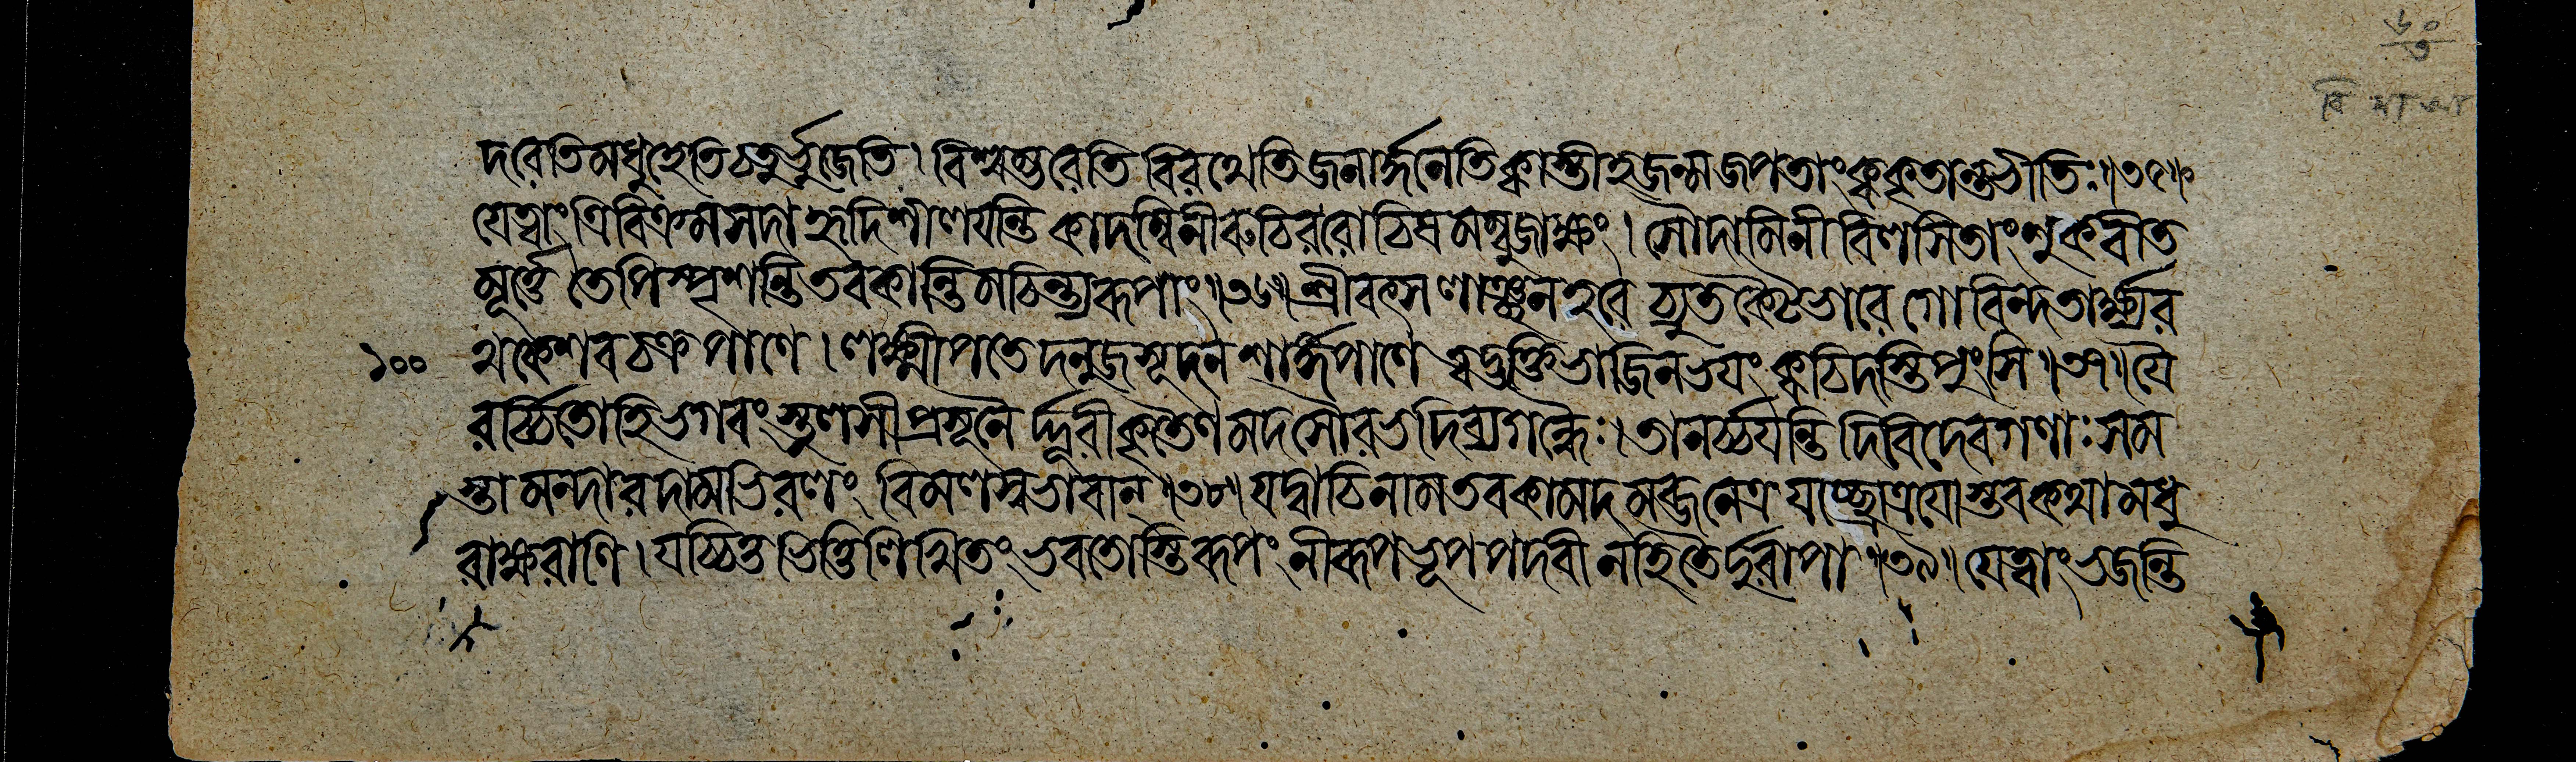 ৬০
৩
বি মা আ
দরেতি মধুহেতি চতুর্ভুজেতি। বিশ্বম্ভরেতি বিরথেতি জনার্দ্দনেতি ক্বাস্তীহ জন্ম জপতাং ক্ব কৃতান্তভীতিঃ॥৩৫॥
যে ত্বাং ত্রিবিক্রম সদা হৃদি শীলয়ন্তি কাদম্বিনীরুচিররোচিষমম্বুজাক্ষং। সৌদামিনীবিলসিতাংশুকবীত
মূর্ত্তে তেপি স্পৃশন্তি তব কান্তিমচিন্ত্যরূপাং॥৩৬॥ শ্রীবৎসলাঞ্ছন হরেচ্যুত কৈটভারে গোবিন্দ তার্ক্ষ্যর
১০০ থ কেশব চক্রপাণে। লক্ষ্মীপতে দনুজসূদন শার্ঙ্গপাণে ত্বদ্ভক্তিভাজি ন ভয়ং ক্বচিদস্তি পুংসি॥৩৭॥ যৈ
রর্চ্চিতোহি ভগবংস্তুলসীপ্রসূনৈ র্দ্দূরীকৃতৈণমদসৌরভদিব্যগন্ধৈঃ। তানর্চ্চয়ন্তি দিবি দেবগণাঃ সম
স্তা মন্দারদামভিরলং বিমলস্বভাবান্॥৩৮॥ যদ্বাচি নাম তব কামদমব্জনেত্র যচ্ছ্রোত্রয়োস্তব কথা মধু
রাক্ষরাণি। যচ্চিত্তভিত্তিলিখিতং ভবতোস্তি রূপং নীরূপভূপপদবী নহি তৈর্দুরাপা॥৩৯॥ যে ত্বাং ভজন্তি